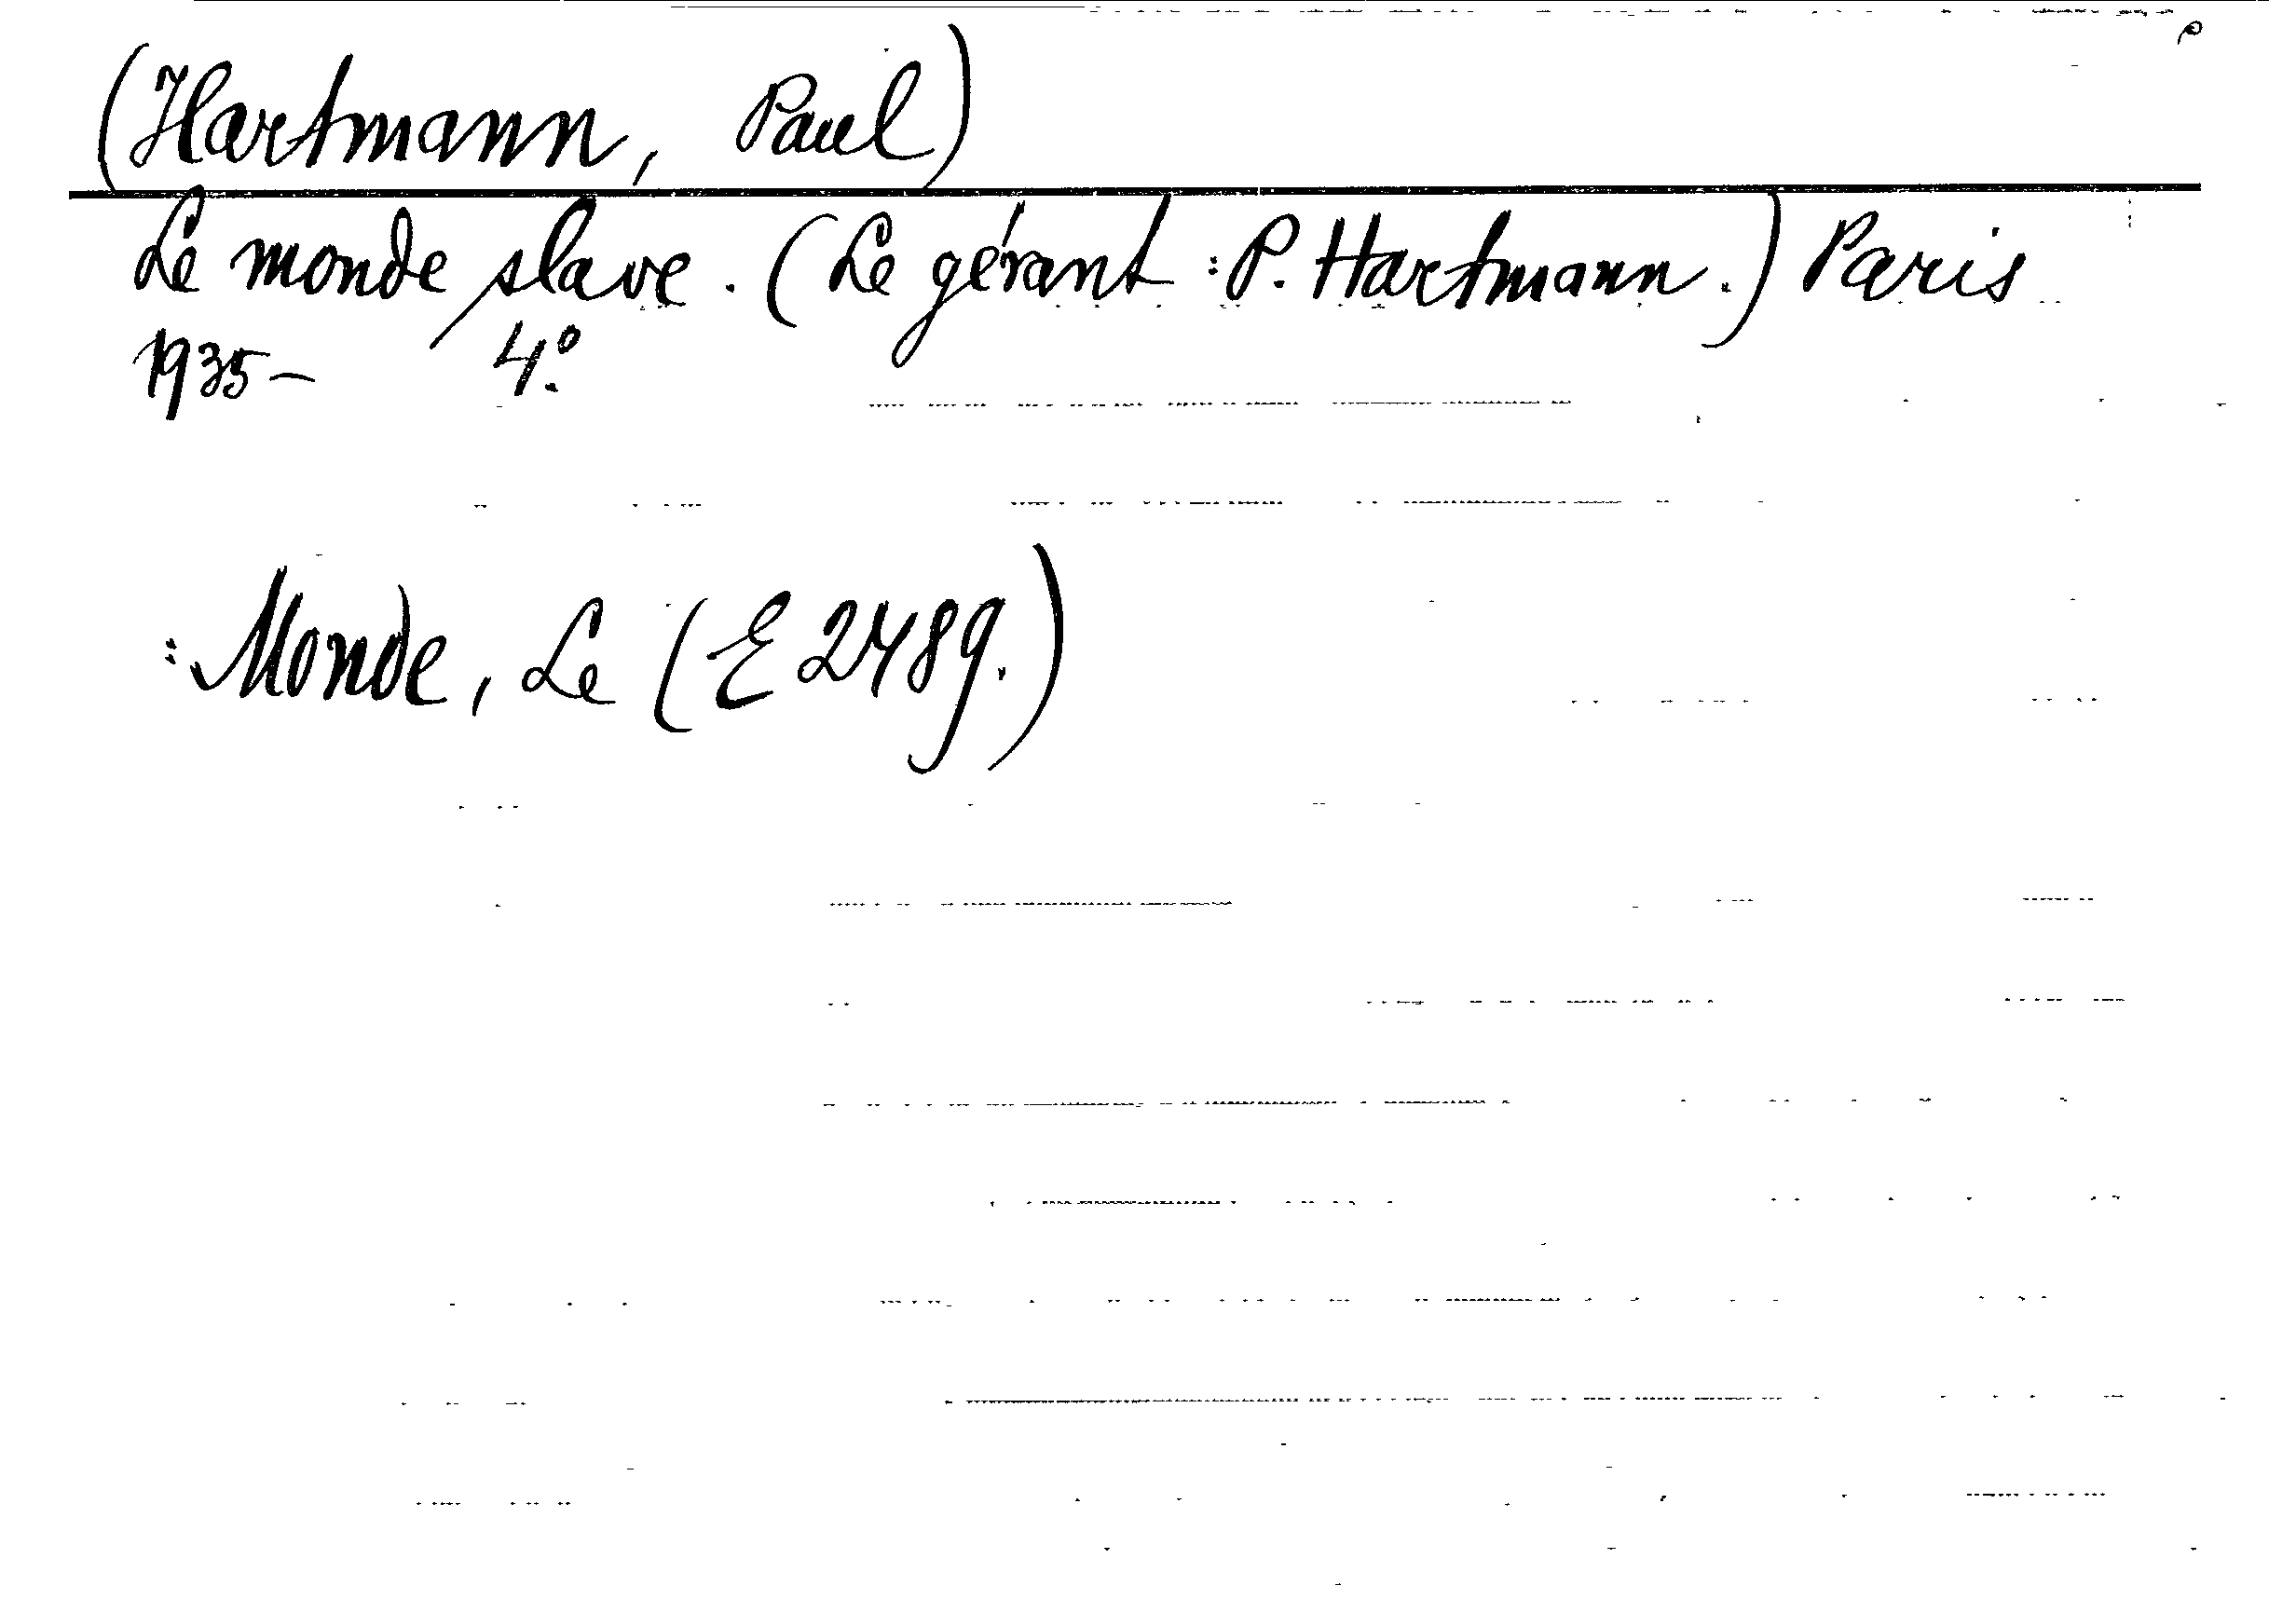 (Hartmann, Paul)
Le monde slave. (Le gérant : P. Hartmann.) Paris
1935- 4:o
: Monde, Le (E 2489.)